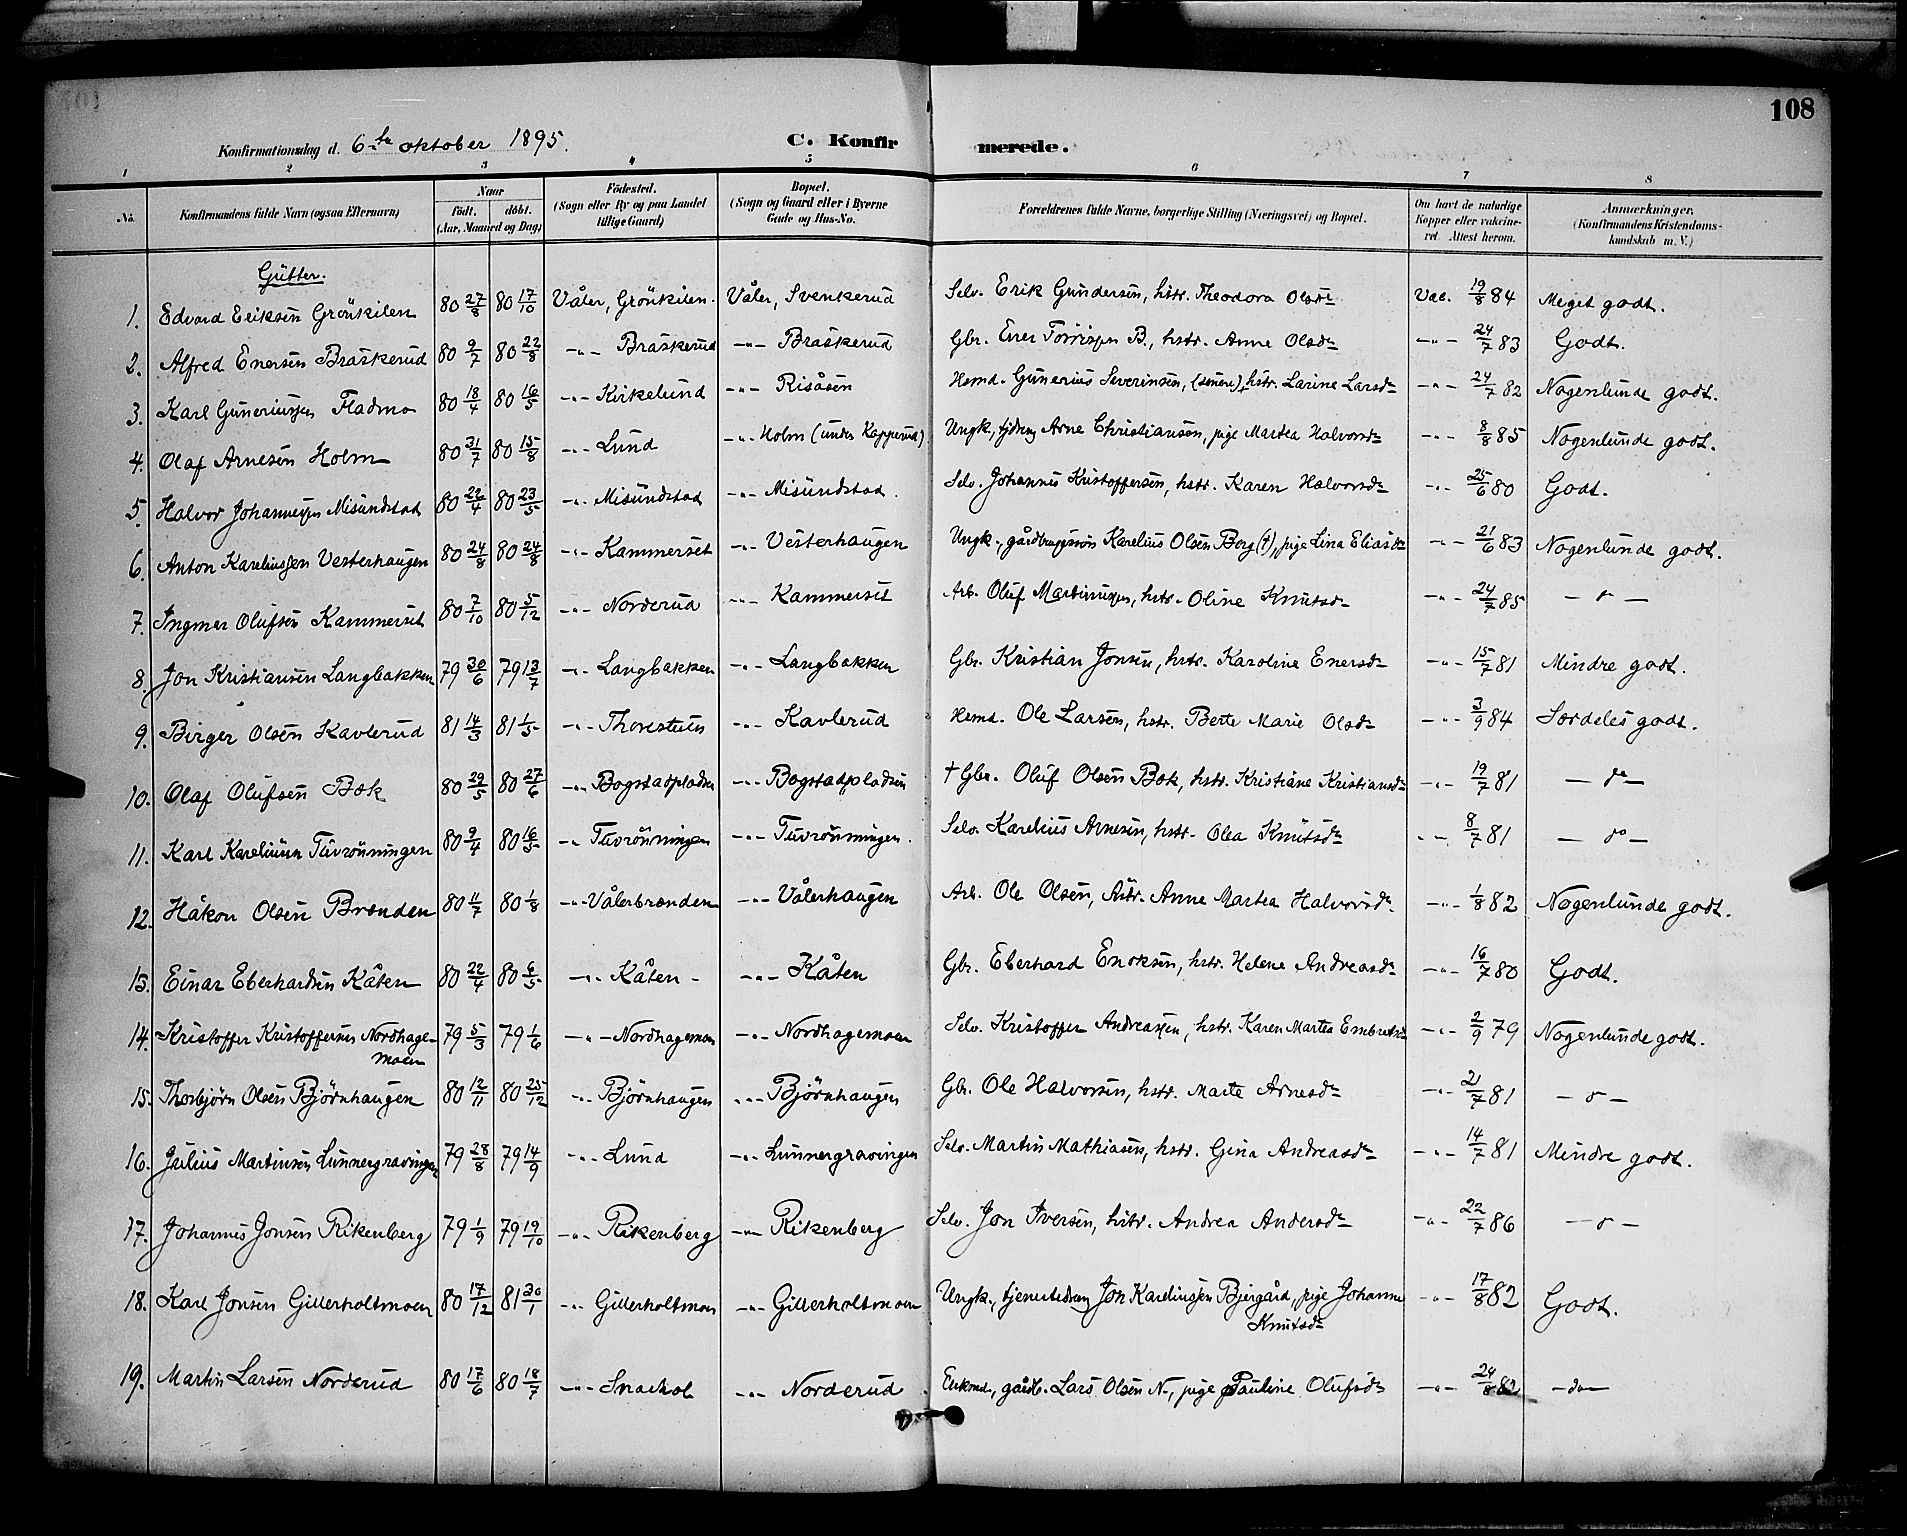 108
Konfirmationsdag d. 6te oktober 1895.
C. Konfirmerede.
1 2 3 4 5 6 7 8
No. Konfirmandens fulde Navn (ogsaa Efternavn) Naar födt. döbt. (Aar, Maaned og Dag) Födested. (Sogn eller By og paa Landet tillige Gaard) Bopæl. (Sogn og Gaard eller i Byerne Gade og Hus-No. Forældrenes fulde Navne, borgerlige Stilling (Næringsvei) og Bopæl. Om havt de naturlige Kopper eller vakcineret. Attest herom. Anmærkninger. (Konfirmandens Kristendomskundskab m. V.)
Gutter.
1. Edvard Eriksen Grönkilen 80 27/8 80 17/10 Våler, Grönkilen. Våler, Svenkerud Selv. Erik Gundersen, hstr. Theodora Olsdr Vac. 19/8 84 Meget godt.
2. Alfred Enersen Braskerud 80 9/7 80 22/8 -"- Braskerud -"- Braskerud Gbr. Ener Torrissen B., hstr. Anne Olsdr -"- 24/7 83 Godt.
3. Karl Guneriussen Fladmo 80 18/4 80 16/5 -"- Kirkelund -"- Risåsen Hemd. Gunerius Severinsen, (senere) hstr. Larine Larsdr -"- 24/7 82 Nogenlunde godt.
4. Olaf Arnesen Holm 80 31/7 80 15/8 -"- Lund -"- Holm (under Kapperud) Ungk., tjdreng Arne Christiansen, pige Martea Halvorsdr -"- 8/8 85 Nogenlunde godt.
5. Halvor Johannessen Misundstad 80 22/4 80 23/5 -"- Misundstad -"- Misundstad. Selv. Johannes Kristoffersen, hstr. Karen Halvorsdr -"- 25/6 80 Godt.
6. Anton Kareliussen Vesterhaugen 80 24/8 80 24/8 -"- Kammerset -"- Vesterhaugen Ungk., gårdbrugersøn Karelius Olsen Berg (†), pige Lina Eliasdr -"- 21/6 83 Nogenlunde godt.
7. Ingmar Olufsen Kammerset 80 7/10 80 5/12 -"- Norderud -"- Kammerset Arb. Oluf Martinussen, hstr. Oline Knutsdr -"- 24/7 85 - o -
8. Jon Kristiansen Langbakken 79 30/6 79 13/7 -"- Langbakken -"- Langbakken Gbr. Kristian Jonsen, hstr. Karoline Enersdr -"- 15/7 81 Mindre godt.
9. Birger Olsen Kavlerud 81 14/3 81 1/5 -"- Thorestuen -"- Kavlerud Hemd. Ole Larsen, hstr. Berte Marie Olsdr -"- 3/9 84 Særdeles godt.
10. Olaf Olufsen Bok 80 29/5 80 27/6 -"- Bogstadpladsen -"- Bogstadpladsen † Gbr. Oluf Olsen Bok, hstr. Kristiane Kristiansdr -"- 19/7 81 - do -
11. Karl Kareliusen Tuvrönningen 80 9/4 80 16/5 -"- Tuvrönningen -"- Tuvrönningen. Selv. Karelius Arnesen, hstr. Olea Knutsdr -"- 8/7 81 - do -
12. Håkon Olsen Brænden 80 11/7 80 1/8 -"- Vålerbrænden -"- Vålerhaugen Arb. Ole Olsen, hstr. Anne Martea Halvorsdr. -"- 1/8 82 Nogenlunde godt.
13. Einar Eberhardsen Kåten 80 22/4 80 6/5 -"- Kåten - -"- Kåten Gbr. Eberhard Enoksen, hstr. Helene Andreasdr -"- 16/7 80 Godt.
14. Kristoffer Kristoffersen Nordhagemoen 79 5/3 79 1/6 -"- Nordhagemoen -"- Nordhagemoen Selv. Kristoffer Andreassen, hstr. Karen Martea Embretsdr -"- 2/9 79 Nogenlunde godt.
15. Thorbjørn Olsen Bjørnhaugen 80 12/11 80 25/12 -"- Bjørnhaugen -"- Bjørnhaugen Gbr. Ole Halvorsen, hstr. Marte Arnesdr -"- 21/7 81 - o -
16. Julius Martinsen Lunnergravingen 79 28/8 79 14/9 -"- Lund -"- Lunnergravingen Selv. Martin Mathiasen, hstr. Gina Andreasdr -"- 14/7 81 Mindre godt.
17. Johannes Jonsen Rikenberg 79 1/9 79 19/10 -"- Rikenberg -"- Rikenberg Selv. Jon Iversen, hstr. Andrea Andersdr -"- 22/7 86 - o -
18. Karl Jonsen Gillerholtmoen 80 17/12 81 30/1 -"- Gillerholtmoen -"- Gillerholtmoen Ungk., tjenestedreng Jon Kareliussen Bjergård, pige Johanne Knutsdr -"- 17/8 82 Godt.
19. Martin Larsen Norderud 80 17/6 80 18/7 -"- Snarhol -"- Norderud Enkmd., gårdb. Lars Olsen N-, pige Pauline Olufsdr -"- 24/8 82 - do -